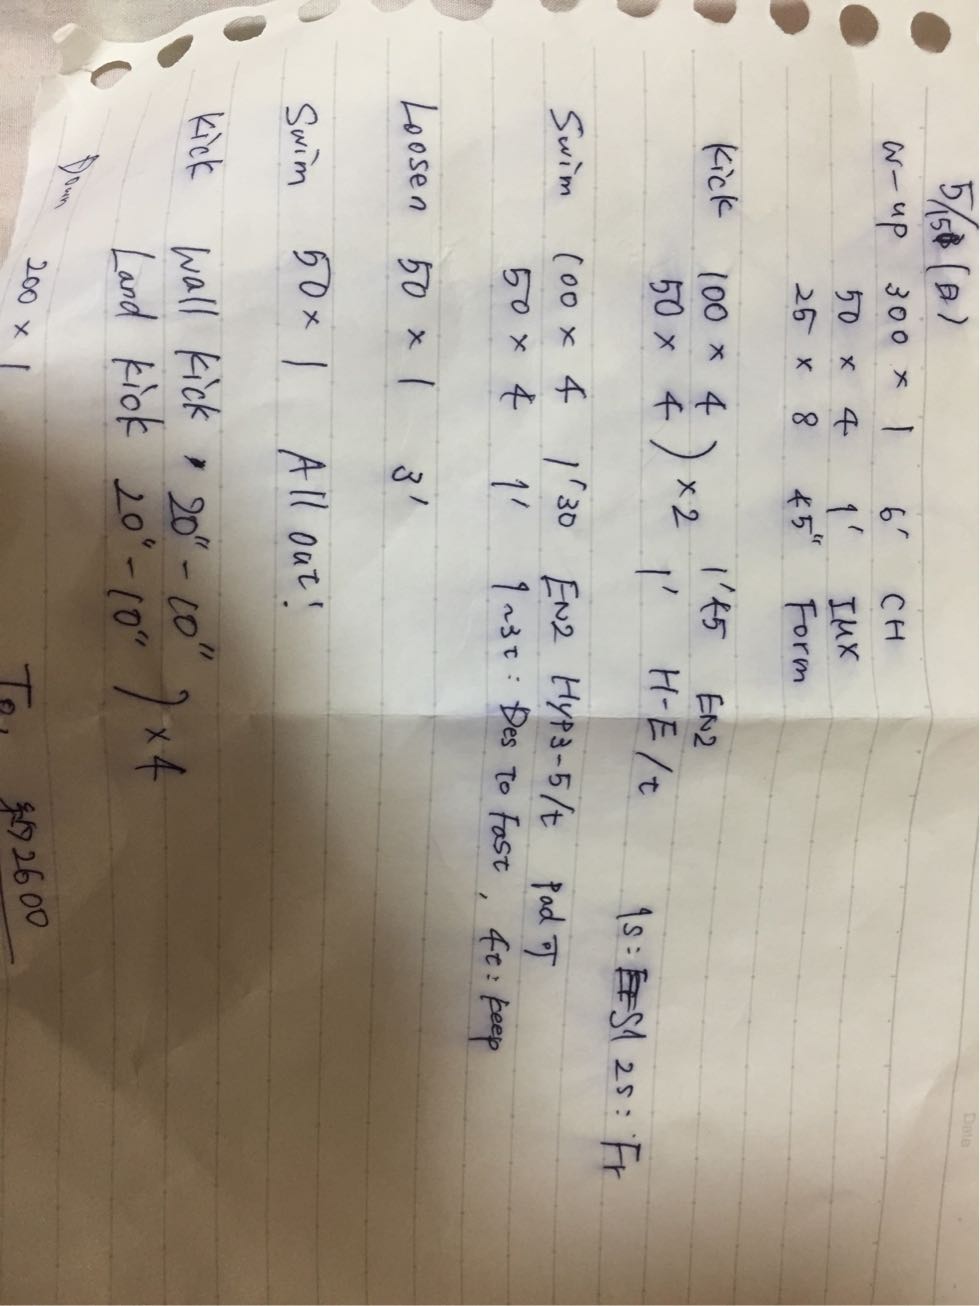 5/15 (日)
W-up 300 × 1 6' CH
50 × 4 1' IMX
25 × 8 45" Form
Kick 100 × 4 ) ×2 1'45 EN2
50 × 4 1' H-E/t 1s: S1 2s: Fr
Swim 100 × 4 1'30 EN2 Hyp3-5/t pad可
50 × 4 1' 1~3t: Des to Fast, 4t: keep
Loosen 50 × 1 3'
Swim 50 × 1 All out!
Kick Wall Kick 20" - 10"
Land Kick 20" - 10" ) × 4
Down 200 × 1
2600
Date